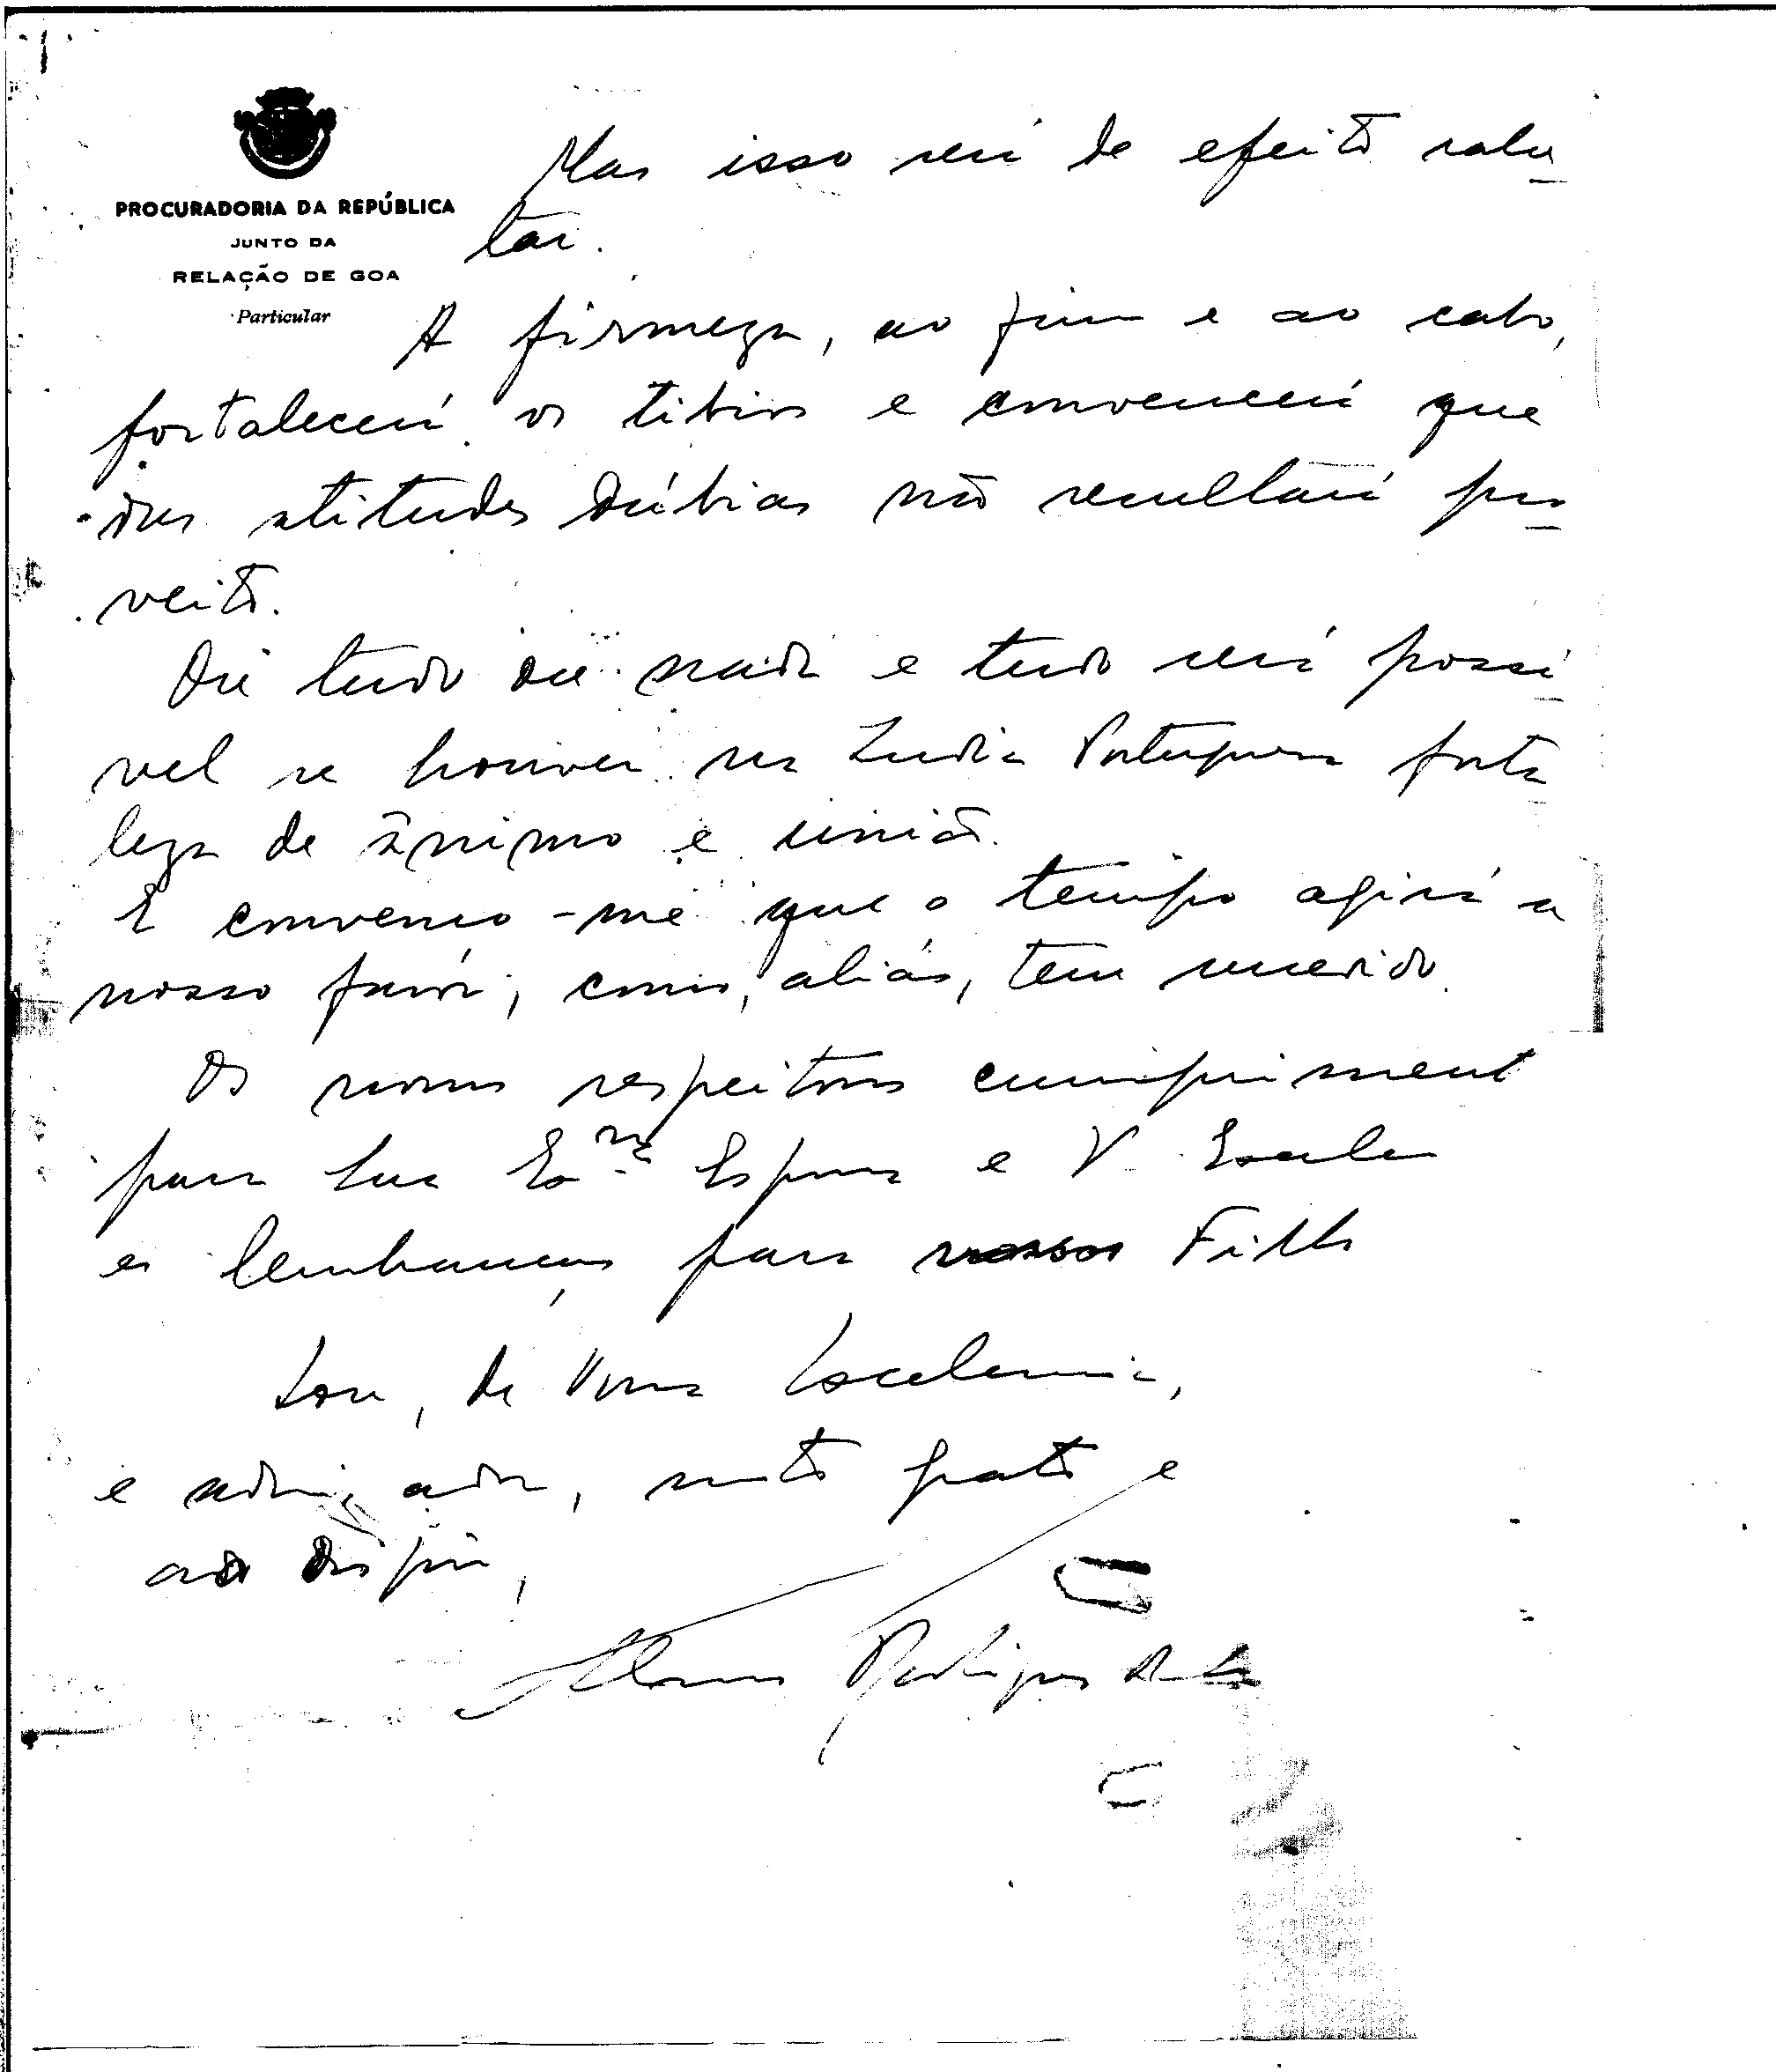 PROCURADORIA DA REPÚBLICA
JUNTO DA
RELAÇÃO DE GOA
Particular
Mas isso será de efeito salu
tar.
A firmeza, ao fim e ao cabo,
fortalecerá os tibios e convencerá que
das atitudes dúbias não resultará pro
veito.
Ou tudo ou nada e tudo será possí
vel se houver na India Portuguesa forta
leza de ânimo e união.
E convenço-me que o tempo agirá a
nosso favor, como, aliás, tem sucedido.
Os nossos respeitosos cumpriment
para Sua Exma Esposa e V. Excelen
e lembranças para vossos Filhos
Sou, de Vossa Excelencia,
e admirador, muito grato e
ao dispor,
Rodrigues